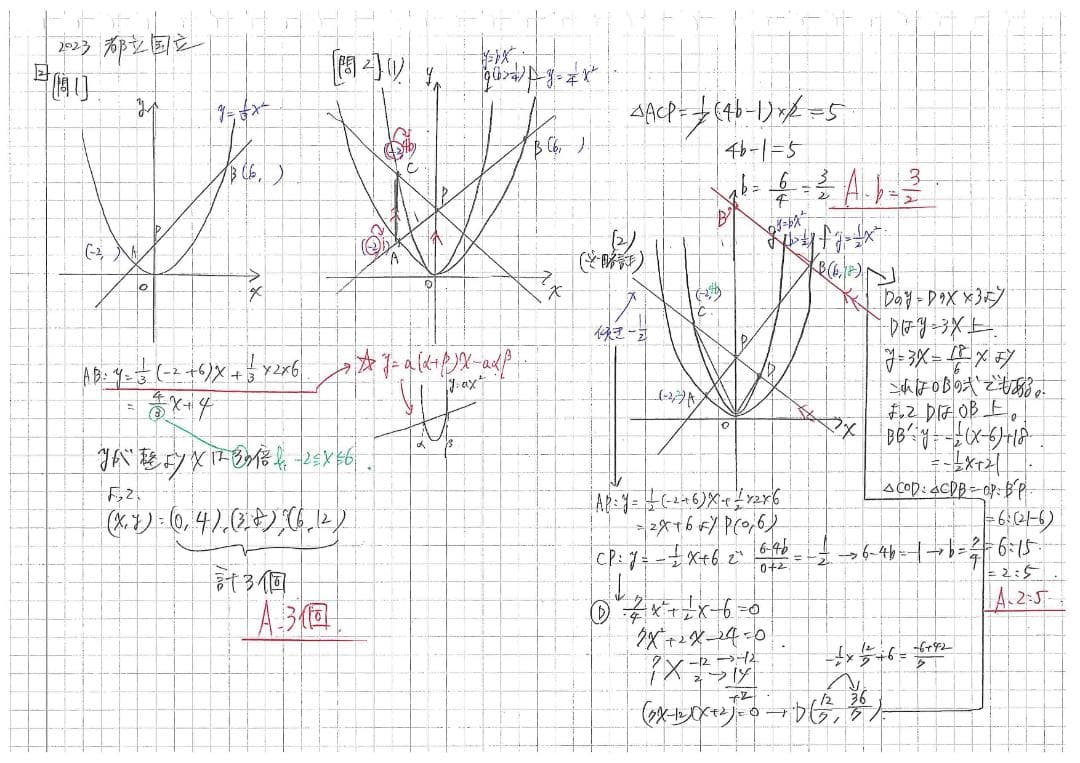 2023 都立国立
2
[問1]
y
y=1/3x²
B(6, )
(-2, )
P
A
O
x
AB: y=1/3(-2+6)x+1/3×2×6
=4/3x+4
☆ y=a(α+β)x-aαβ
y=ax²
α
β
yが整より xは③の倍 -2≦x≦6.
よって、
(x,y)=(0,4),(3,8),(6,12)
計3個
A.3個
[問2](1)
y
y=bx²
g(b>1/4)
f y=1/4x²
(-2,4b)
C
B(6, )
P
(-2,1)
A
O
x
△ACP=1/2(4b-1)×2=5
4b-1=5
b=6/4=3/2
A. b=3/2
(2)
B'
y=bx²
g b>1/2
f y=1/2x²
B(6,18)
(-2,4b)
C
傾き-1/2
P
D
(-2,2)A
O
x
Dのy=Dのx×3より
Dはy=3x上.
y=3x=18/6xより
これはOBの式でもある。
よってDはOB上。
BB': y=-1/2(x-6)+18
=-1/2x+21
△COD:△CDB=OP:B'P
=6:(21-6)
=6:15
=2:5
A.2:5
AP: y=1/2(-2+6)x+1/2×2×6
=2x+6よりP(0,6)
CP: y=-1/2x+6で (6-4b)/(0+2)=-1/2→6-4b=-1→b=7/4
Ⓓ 7/4x²+1/2x-6=0
7x²+2x-24=0
7 -12→-12
1 2→14
+2
(7x-12)(x+2)=0→D(12/7, 36/7)
-1/2×12/7+6=(-6+42)/7